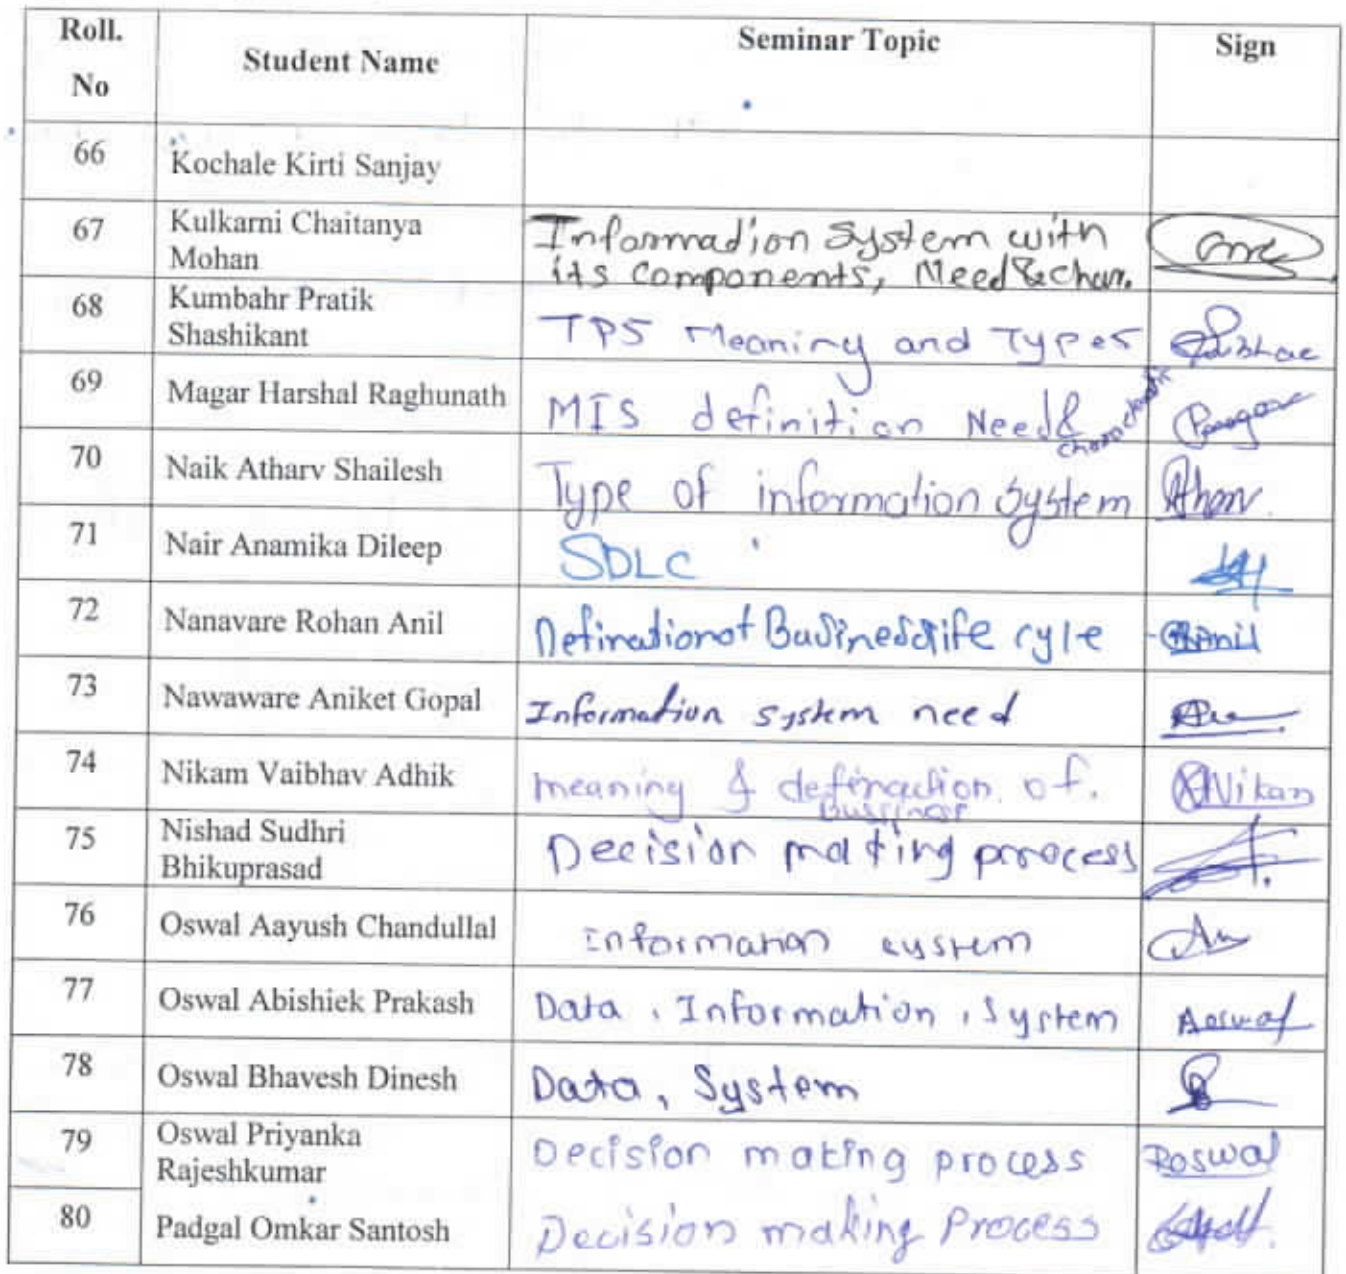 Roll. No Student Name Seminar Topic Sign
66 Kochale Kirti Sanjay
67 Kulkarni Chaitanya Mohan Information System with
its Components, Need & Char.
68 Kumbahr Pratik Shashikant TPS Meaning and Types
69 Magar Harshal Raghunath MIS definition Need &
70 Naik Atharv Shailesh Type of information System
71 Nair Anamika Dileep SDLC
72 Nanavare Rohan Anil Definationof Business life cycle
73 Nawaware Aniket Gopal Information system need
74 Nikam Vaibhav Adhik meaning & defination of.
Bussiness
75 Nishad Sudhri Bhikuprasad Decision making process
76 Oswal Aayush Chandullal Information system
77 Oswal Abishiek Prakash Data, Information, System Aoswal
78 Oswal Bhavesh Dinesh Data, System
79 Oswal Priyanka Rajeshkumar Decision making process Poswal
80 Padgal Omkar Santosh Decision making Process